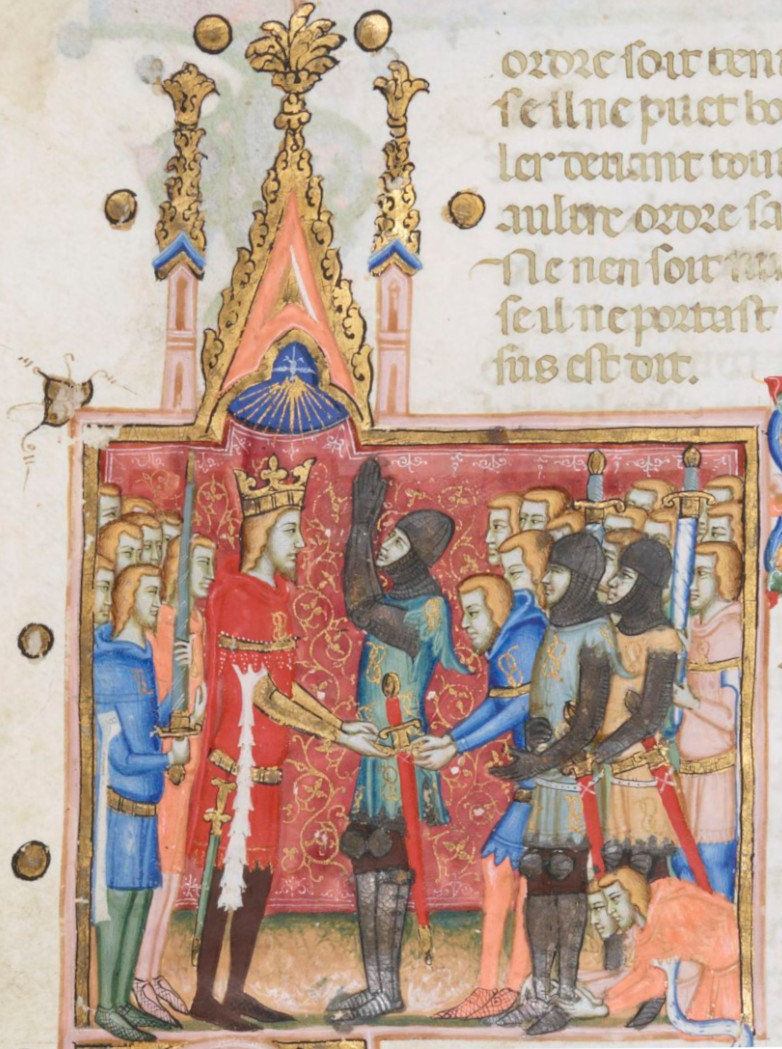 ordre soit ten
se il ne puet
ler devant tout
aultre ordre
Ne nen soit
se il ne portast
sus est dit.